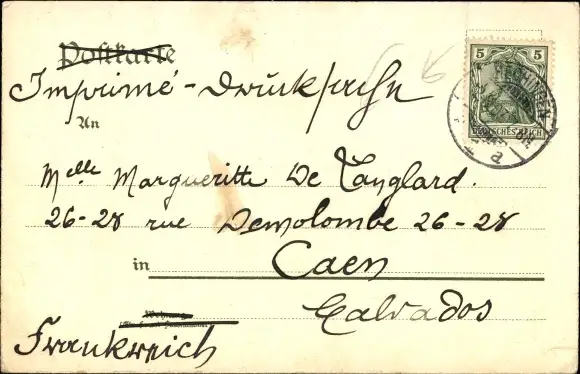 Postkarte
5 5
Imprimé - Drucksache
DEUTSCHES REICH
a
An
Melle Margueritte De Tanglard.
26-28 rue Demolombe 26-28
in Caen
Calvados
Wohnung
Frankreich